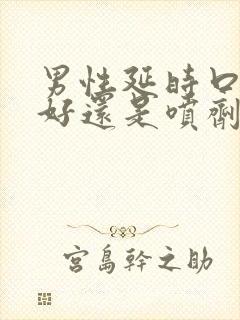 男性延時口
好還是噴劑
宮島幹之助